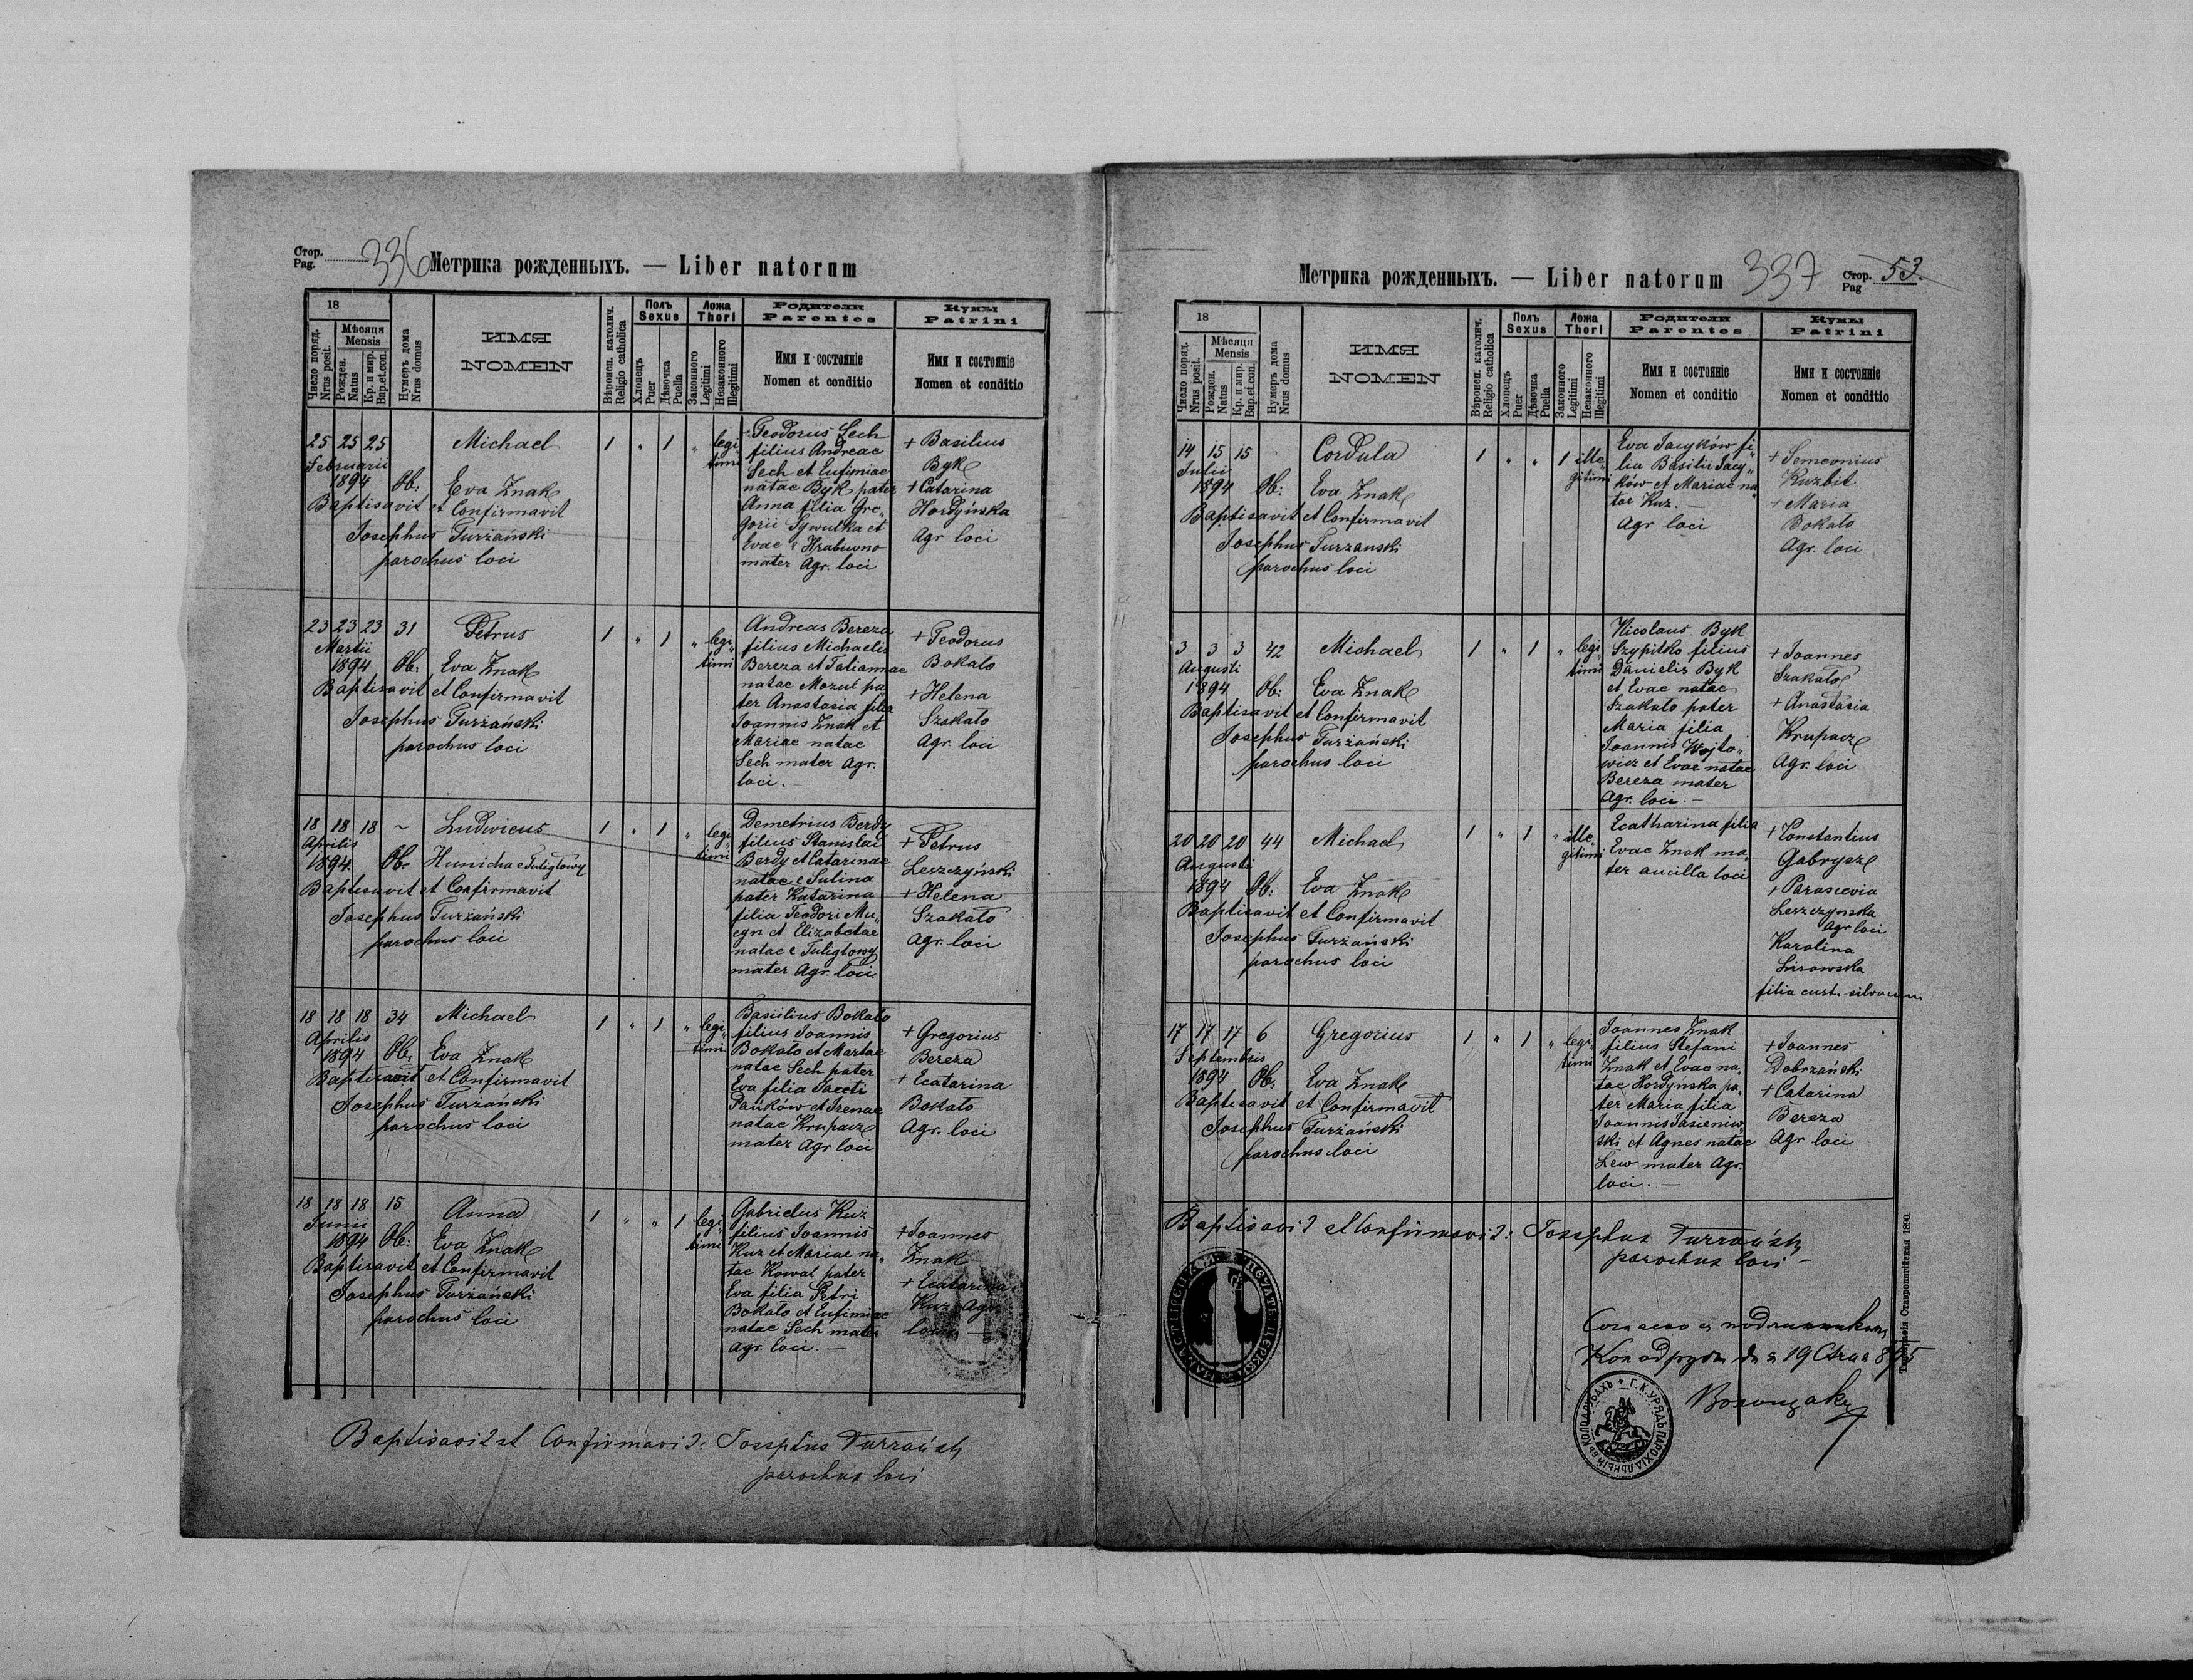 Стор.
Pag. 336 Метрика рожденныхъ. — Liber natorum
18
Число поряд.
Nrus posit.
Мѣсяця
Mensis
Рожден.
Natus
Кр. и мир.
Bap.et.con.
Нумеръ дома
Nrus domus
ИМЯ
NOMEN
Вѣроисп. католич.
Religio catholica
Полъ
Sexus
Хлопецъ
Puer
Дѣвочка
Puella
Ложа
Thori
Законного
Legitimi
Незаконного
Illegitimi
Родители
Parentes
Имя и состоянiе
Nomen et conditio
Кумы
Patrini
Имя и состоянiе
Nomen et conditio
25 25 25 Michael 1 " 1 " legi
timi
Februarii
1894 Ob: Eva Znak
Baptisavit et Confirmavit
Josephus Turzański
parochus loci
Teodorus Sech
filius Andreae
Sech et Eufimiae
natae Byk pater
Anna filia Gre„
gorii Sywulka et
Evae e Hrabiwno
mater Agr. loci
+ Basilius
Byk
+ Catarina
Hordyńska
Agr loci
23 23 23 31 Petrus 1 " 1 " legi„
timi
Martii
1894 Ob: Eva Znak
Baptisavit et Confirmavit
Josephus Turzański
parochus loci
Andreas Bereza
filius Michaelis
Bereza et Tatiannae
natae Mozul pa
ter Anastasia filia
Joannis Znak et
Mariae natae
Sech mater Agr.
loci. —
+ Teodorus
Bokalo
+ Helena
Szakalo
Agr. loci
18 18 18 ~ Ludwicus 1 " 1 " legi„
timi
Aprilis
1894. Ob: Hunicha e Tuligłowy
Baptisavit et Confirmavit
Josephus Turżański
parochus loci
Demetrius Berdy
filius Stanislai
Berdy et Catarinae
natae e Sulina
pater Katarina
filia Teodori Mu„
cyn et Elizabetae
natae e Tuligłowy
mater Agr. loci
+ Petrus
Leszczyński
+ Helena
Szakato
Agr. loci
18 18 18 34 Michael 1 " 1 " legi„
timi
Aprilis
1894 Ob: Eva Znak
Baptisavit et Confirmavit
Josephus Turżański
parochus loci
Basiilius Bokalo
filius Joannis
Bokalo et Martae
natae Sech pater
Eva filia
Pańków et Irenae
natae Krupacz
mater Agr loci
+ Gregorius
Bereza
+ Ecatarina
Bokato
Agr. loci
18 18 18 15 Anna 1 " " 1 legi„
timi
Junii
1894 Ob: Eva Znak
Baptisavit et Confirmavit
Josephus Turżański
parochus loci
Gabrielus Kuz
filius Joannis
Kuz et Mariae na„
tae Kowal pater
Eva filia Petri
Bokalo et Eufimiae
natae Sech mater
Agr. loci. —
+ Joannes
Znak
+ Ecatarina
Kuz Agr.
loci —
Baptisavit et Confirmavit: Josephus Turzański
parochus loci
Метрика рожденныхъ. — Liber natorum 337 Стор.
Pag 53.
18
Число поряд.
Nrus posit.
Мѣсяця
Mensis
Рожден.
Natus
Кр. и мир.
Bap.et.con.
Нумеръ дома
Nrus domus
ИМЯ
NOMEN
Вѣроисп. католич.
Religio catholica
Полъ
Sexus
Хлопецъ
Puer
Дѣвочка
Puella
Ложа
Thori
Законного
Legitimi
Незаконного
Illegitimi
Родители
Parentes
Имя и состоянiе
Nomen et conditio
Кумы
Patrini
Имя и состоянiе
Nomen et conditio
14 15 15 Cordula 1 " " 1 ille„
gitimi
Julii
1894 Ob: Eva Znak
Baptisavit et Confirmavit
Josephus Turzanski
parochus loci
Eva Jacyków fi„
lia Basilii Jacy„
ków et Mariae na„
tae Kuz. —
Agr loci
+ Semeonius
Kuzbit
+ Maria
Bokalo
Agr. loci
3 3 3 42 Michael 1 " 1 " legi„
timi
Augusti
1894 Ob: Eva Znak
Baptisavit et Confirmavit
Josephus Turżański
parochus loci
Nicolaus Byk
Szypitko filius
Danielis Byk
et Evae natae
Szakalo pater
Maria filia
Joannis Wojto„
wicz et Evae natae
Bereza mater
Agr. loci. —
+ Joannes
Szakało
+ Anastasia
Krupacz
Agr. loci
20 20 20 44 Michael 1 " 1 " ille„
gitimi
Augusti
1894 Ob: Eva Znak
Baptisavit et Confirmavit
Josephus Turżański
parochus loci
Ecatharina filia
Evae Znak ma„
ter ancilla loci
+ Constantius
Gabrysz
+ Parascevia
Leszczynska
Agr loci
Karolina
Lisowska
filia cust. silvarum
17 17 17 6 Gregorius 1 " 1 " legi
timi
Septembris
1894 Ob: Eva Znak
Baptisavit et Confirmavit
Josephus Turżański
parochus loci
Joannes Znak
filius Stefani
Znak et Evae na„
tae Hordyńska pa„
ter Maria filia
Joannis Jasieniw„
ski et Agnes natae
Lew mater Agr.
loci. —
+ Joannes
Dobrzański
+ Catarina
Bereza
Agr loci
Baptisavit et Confirmavit: Josephus Turzański
parochus loci —
19 895
Г.К. УРЯДЪ ПАРОХIАЛЬНЫЙ въ КОЛОДРУБАХЪ
Ставропигiйская 1890.